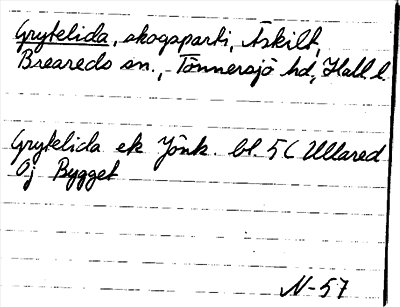 Grytelida, skogsparti, Askilt,
Breareds sn., Tönnersjö hd, Hall. l.
Grytelida ek Jönk. bl. 5 C Ullared
Oj Bygget
N-57